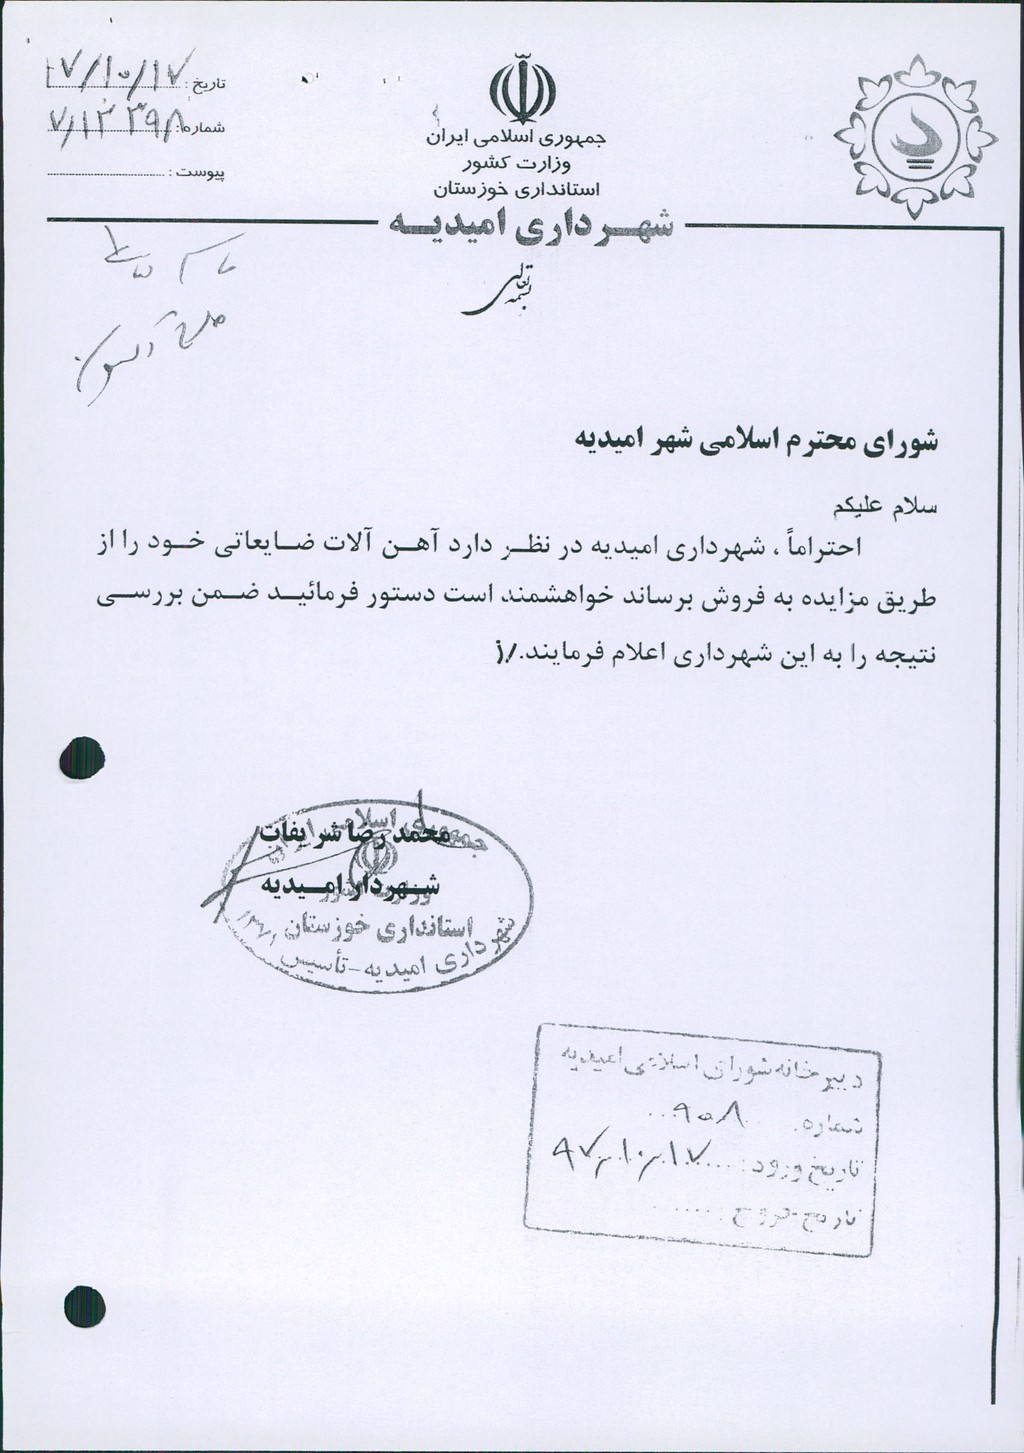 جمهوری اسلامی ایران
وزارت کشور
استانداری خوزستان
شهرداری امیدیه
تاریخ : ۷/۱۰/۱۷
شماره: ۷/۱۳۳۹۸
پیوست :
بسمه تعالی
شورای محترم اسلامی شهر امیدیه
سلام علیکم
احتراماً ، شهرداری امیدیه در نظر دارد آهن آلات ضایعاتی خود را از
طریق مزایده به فروش برساند خواهشمند است دستور فرمائید ضمن بررسی
نتیجه را به این شهرداری اعلام فرمایند./ز
محمدرضا شریفات
شهردار امیدیه
جمهوری اسلامی ایران
وزارت کشور
استانداری خوزستان
شهرداری امیدیه - تأسیس
دبیرخانه شورای اسلامی امیدیه
شماره: ۹۰۸
تاریخ ورود: ۹۷/۱۰/۱۷
تاریخ خروج: